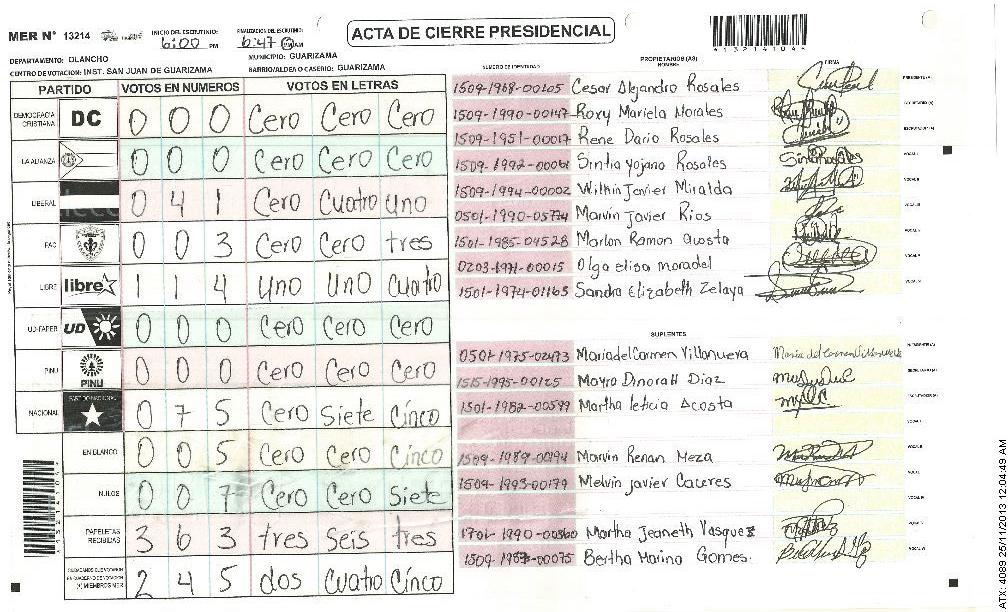 MER N° 13214
INICIO DEL ESCRUTINIO: 6:00 PM
FINALIZACION DEL ESCRUTINIO: 6:47 PM AM
ACTA DE CIERRE PRESIDENCIAL
413214104
DEPARTAMENTO: OLANCHO
MUNICIPIO: GUARIZAMA
CENTRO DE VOTACION: INST. SAN JUAN DE GUARIZAMA
BARRIO/ALDEA O CASERIO: GUARIZAMA
PARTIDO VOTOS EN NUMEROS VOTOS EN LETRAS
DEMOCRACIA CRISTIANA DC 0 0 0 Cero Cero Cero
LA ALIANZA 0 0 0 Cero Cero Cero
LIBERAL 0 4 1 Cero Cuatro Uno
PAC 0 0 3 Cero Cero tres
LIBRE libre 1 1 4 Uno Uno Cuatro
UD-FAPER UD 0 0 0 Cero Cero Cero
PINU PINU 0 0 0 Cero Cero Cero
NACIONAL PARTIDO NACIONAL 0 7 5 Cero Siete Cinco
EN BLANCO 0 0 5 Cero Cero Cinco
NULOS 0 0 7 Cero Cero Siete
PAPELETAS RECIBIDAS 3 6 3 tres Seis tres
CIUDADANOS QUE VOTARON EN CUADERNO DE VOTACION (+) MIEMBROS MER 2 4 5 dos Cuatro Cinco
NUMERO DE IDENTIDAD PROPIETARIOS (AS) NOMBRE FIRMA
1509-1968-00105 Cesar Alejandro Rosales PRESIDENTE(A)
1509-1990-00147 Roxy Mariela Morales SECRETARIO (A)
1509-1951-00017 Rene Dario Rosales ESCRUTADOR (A)
1509-1992-00061 Sintia Yojano Rosales VOCAL I
1509-1994-00002 Wilmin Javier Miralda VOCAL II
0501-1990-05774 Marvin Javier Rios VOCAL III
1501-1985-04528 Marlon Ramon acosta VOCAL IV
0203-1971-00015 Olga elisa moradel VOCAL V
1501-1974-01165 Sandra Elizabeth Zelaya VOCAL VI
SUPLENTES
0501-1975-02473 Maria del Carmen Villanueva Maria del Carmen Villanueva PRESIDENTE (A)
1515-1995-00125 Mayra Dinorah Diaz SECRETARIO (A)
1501-1982-00599 Martha leticia Acosta ESCRUTADOR (A)
1509-1989-00194 Marvin Renan Meza VOCAL II
1509-1993-00179 Melvin javier Caceres
1701-1990-00860 Martha Jeaneth Vasquez
1509-1987-00075 Bertha Marina Gomes. VOCAL VI
ATX: 4089 25/11/2013 12:04:49 AM